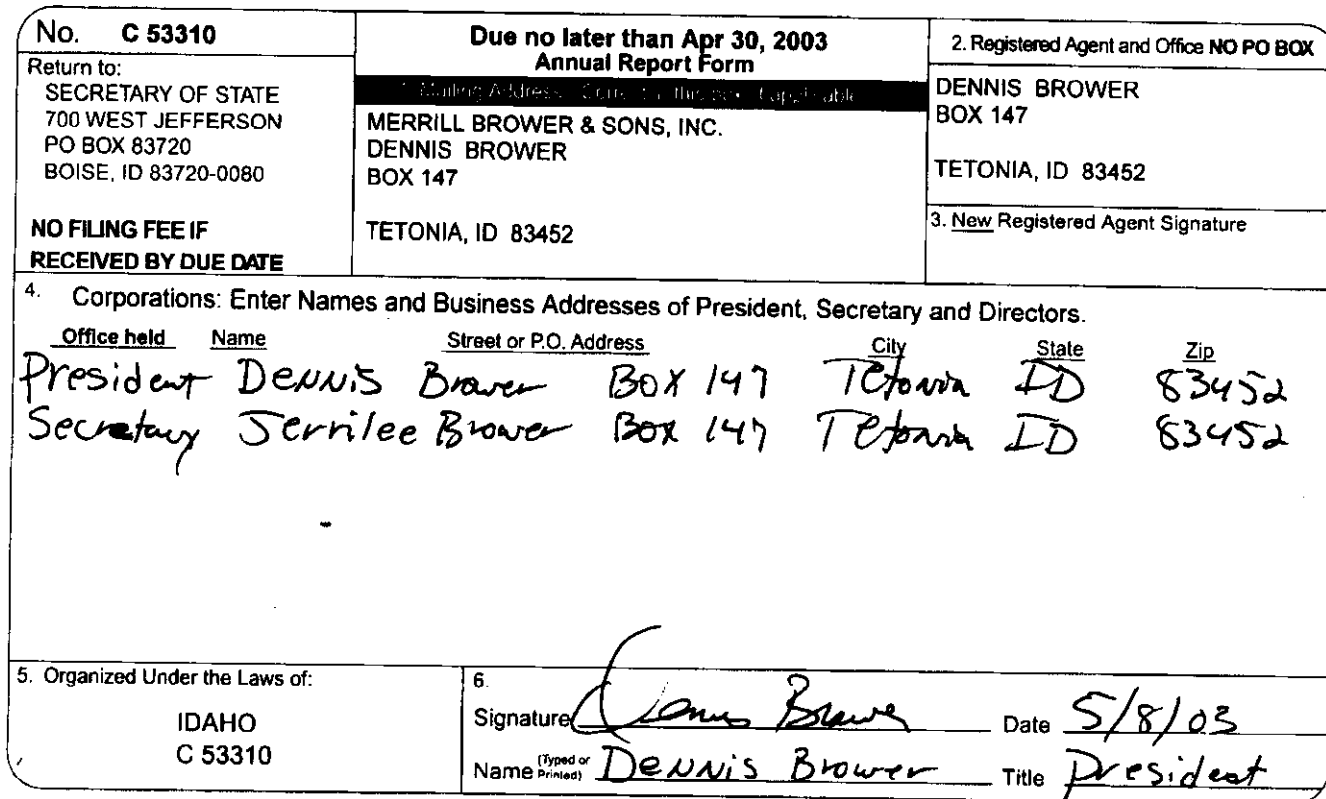 No. C 53310
Return to:
SECRETARY OF STATE
700 WEST JEFFERSON
PO BOX 83720
BOISE, ID 83720-0080
NO FILING FEE IF
RECEIVED BY DUE DATE
Due no later than Apr 30, 2003
Annual Report Form
Mailing Address: Correct in this box if applicable
MERRILL BROWER & SONS, INC.
DENNIS BROWER
BOX 147
TETONIA, ID 83452
2. Registered Agent and Office NO PO BOX
DENNIS BROWER
BOX 147
TETONIA, ID 83452
3. New Registered Agent Signature
4. Corporations: Enter Names and Business Addresses of President, Secretary and Directors.
Office held Name Street or P.O. Address City State Zip
President Dennis Brower Box 147 Tetonia ID 83452
Secretary Jerrilee Brower Box 147 Tetonia ID 83452
5. Organized Under the Laws of:
IDAHO
C 53310
6.
Signature Dennis Brower Date 5/8/03
Name (Typed or Printed) Dennis Brower Title President